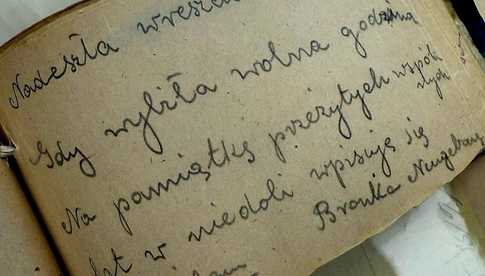 Nadeszła
Gdy wybiła wolna godzina
Na pamiątkę przeżytych wspól
nych
lat w niedoli wpisuję się
Bronka